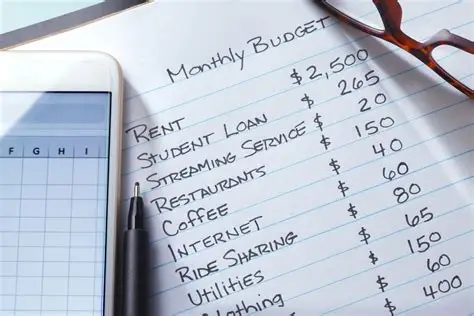 Monthly Budget
Rent $2,500
Student Loan $ 265
Streaming Service $ 20
Restaurants $ 150
Coffee $ 40
Internet $ 60
Ride Sharing $ 80
Utilities $ 65
Clothing $ 150
$ 60
$ 400
F G H I